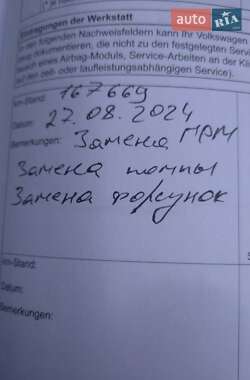 auto RIA
Eintragungen der Werkstatt
In den folgenden Nachweisfeldern kann Ihr Volkswagen
dokumentieren, die nicht zu den festgelegten Serv
eines Airbag-Moduls, Service-Arbeiten an der Kli
zeit- oder laufleistungsabhängigen Service).
km-Stand: 167669
Datum: 27.08.2024
Bemerkungen: Замена ГРМ
Замена помпы
Замена форсунок
km-Stand:
Datum:
Bemerkungen: